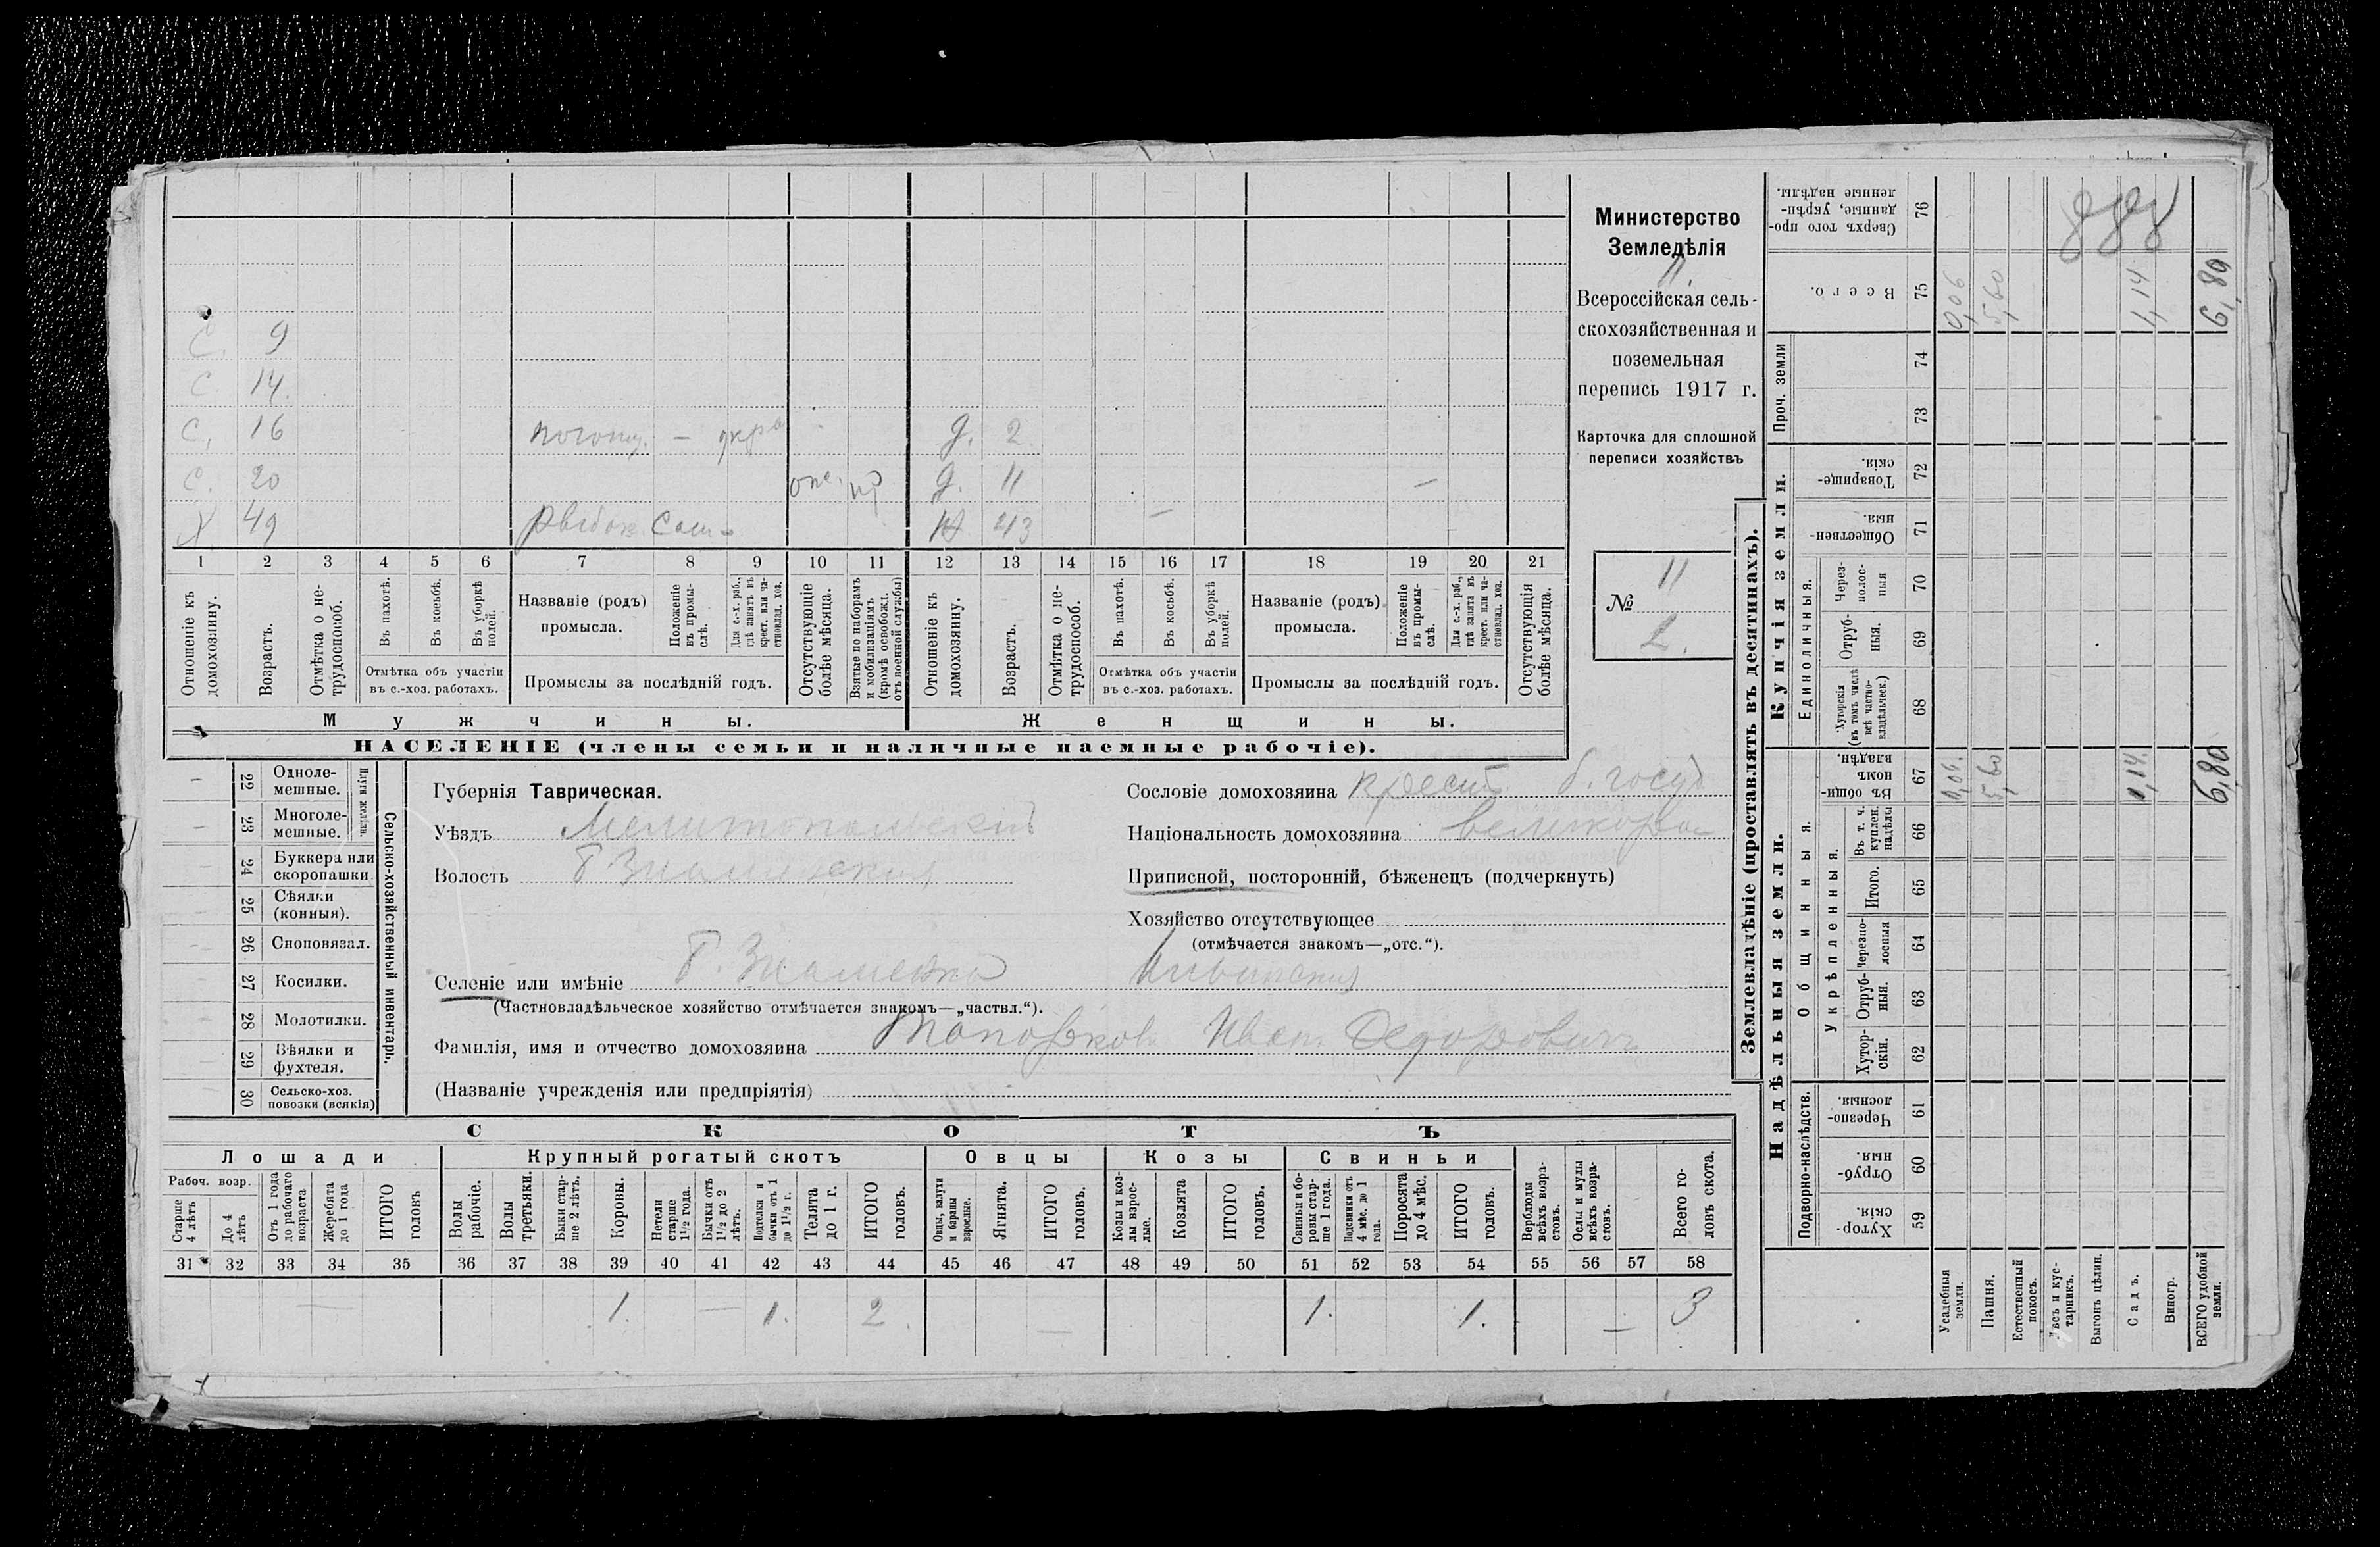 Министерство
Земледѣлія
II
Всероссійская сель-
скохозяйственная и
поземельная
перепись 1917 г.
Карточка для сплошной
переписи хозяйствъ
№ 11
2.
С. 9
С. 14.
С. 16 д. 2
С. 20 отс. д. 11
Х 49 43
1 2 3 4 5 6 7 8 9 10 11 12 13 14 15 16 17 18 19 20 21
Отношеніе къ домохозяину.
Возрастъ.
Отмѣтка о не-трудоспособ.
Въ пахотѣ.
Въ косьбѣ.
Въ уборкѣ полей.
Отмѣтка объ участіи
въ с.-хоз. работахъ.
Названіе (родъ)
промысла.
Положеніе въ промы-слѣ.
Для с.-х. раб., гдѣ занятъ въ крест. или ча-стновлад. хоз.
Промыслы за послѣдній годъ.
Отсутствующіе болѣе мѣсяца.
Взятые по наборамъ и мобилизаціямъ (кромѣ освобожд. отъ военной службы)
Отношеніе къ домохозяину.
Возрастъ.
Отмѣтка о не-трудоспособ.
Въ пахотѣ.
Въ косьбѣ.
Въ уборкѣ полей.
Отмѣтка объ участіи
въ с.-хоз. работахъ.
Названіе (родъ)
промысла.
Положеніе въ промы-слѣ.
Для с.-х. раб., гдѣ занята въ крест. или ча-стновлад. хоз.
Промыслы за послѣдній годъ.
Отсутствующія болѣе мѣсяца.
Мужчины. Женщины.
НАСЕЛЕНІЕ (члены семьи и наличные наемные рабочіе).
Сельско-хозяйственный инвентарь.
Плуги желѣзн.
22 Одноле-мешные.
23 Многоле-мешные.
24 Буккера или скоропашки
25 Сѣялки (конныя).
26 Сноповязал.
27 Косилки.
28 Молотилки.
29 Вѣялки и фухтеля.
30 Сельско-хоз. повозки (всякія)
Губернія Таврическая.
Уѣздъ Мелитопольскій
Волость Б Знаменская
Селеніе или имѣніе Б. Знаменка
(Частновладѣльческое хозяйство отмѣчается знакомъ—„частвл.“).
Фамилія, имя и отчество домохозяина Топорков Иван Федорович
(Названіе учрежденія или предпріятія)
Сословіе домохозяина крест. б. госуд
Національность домохозяина великорос
Приписной, посторонній, бѣженецъ (подчеркнуть)
Хозяйство отсутствующее
(отмѣчается знакомъ—„отс.“).
СКОТЪ
Лошади Крупный рогатый скотъ Овцы Козы Свиньи
Рабоч. возр.
Старше 4 лѣтъ
До 4 лѣтъ
Отъ 1 года до рабочаго возраста
Жеребята до 1 года
ИТОГО головъ
Волы рабочіе.
Волы третьяки.
Быки стар-ше 2 лѣтъ.
Коровы.
Нетели старше 1½ года.
Бычки отъ 1½ до 2 лѣтъ.
Подтелки и бычки отъ 1 до 1½ г.
Телята до 1 г.
ИТОГО головъ.
Овцы, валухи и бараны взрослые.
Ягнята.
ИТОГО головъ.
Козы и коз-лы взрос-лые.
Козлята
ИТОГО головъ.
Свиньи и бо-ровы стар-ше 1 года.
Подсвинки отъ 4 мѣс. до 1 года.
Поросята до 4 мѣс.
ИТОГО головъ.
Верблюды всѣхъ возра-стовъ.
Ослы и мулы всѣхъ возра-стовъ.
Всего го-ловъ скота.
31 32 33 34 35 36 37 38 39 40 41 42 43 44 45 46 47 48 49 50 51 52 53 54 55 56 57 58
— 1. — 1. 2. — 1. 1. — 3
Землевладѣніе (проставлять въ десятинахъ).
Надѣльныя земли. Купчія земли.
Проч. земли
Подворно-наслѣдств.
Общинныя.
Укрѣпленныя.
Единоличныя.
Сверхъ того про-данные, укрѣп-ленные надѣлы. 76
Всего. 75 0,06 5,60 1,14 6,80
74
73
Товарище-скія. 72
Обществен-ныя. 71
Через-полос-ныя 70
Отруб-ныя. 69
Хуторскія (въ томъ числѣ всѣ частно-владѣльческ.) 68
Въ общи-номъ владѣн. 67 0,06. 5,60 1,14. 6,80
Въ т. ч. куплен. надѣлы 66
Итого. 65
Черезпо-лосныя 64
Отруб-ныя. 63
Хутор-скія. 62
Черезпо-лосныя. 61
Отруб-ныя. 60
Хутор-скія. 59
Усадебная земля.
Пашня.
Естественный покосъ.
Лѣсъ и кус-тарникъ.
Выгонъ цѣлин.
Садъ.
Виногр.
ВСЕГО удобной земли.